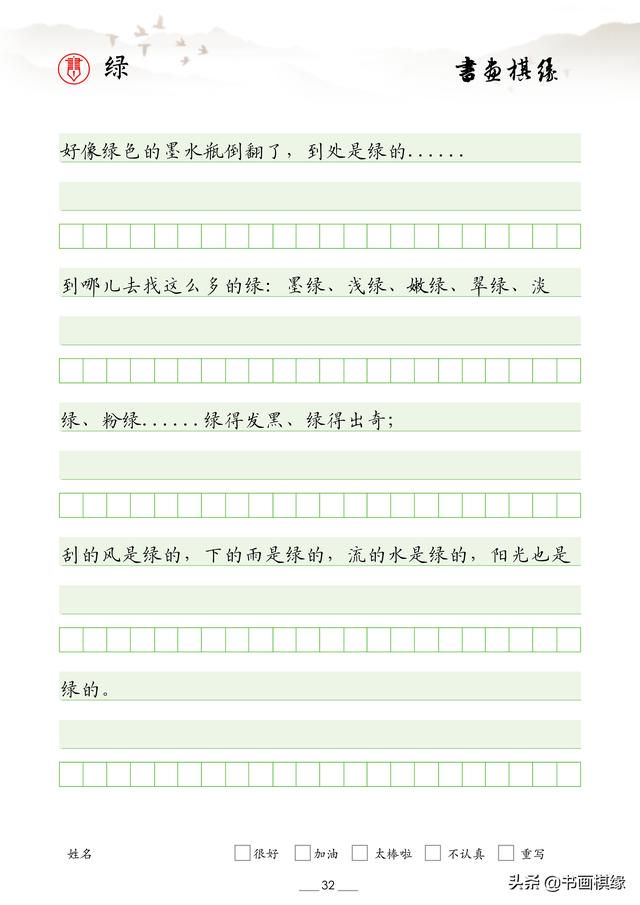 绿
書画棋缘
好像绿色的墨水瓶倒翻了，到处是绿的......
到哪儿去找这么多的绿：墨绿、浅绿、嫩绿、翠绿、淡
绿、粉绿......绿得发黑、绿得出奇；
刮的风是绿的，下的雨是绿的，流的水是绿的，阳光也是
绿的。
姓名 很好 加油 太棒啦 不认真 重写
32
头条 @书画棋缘